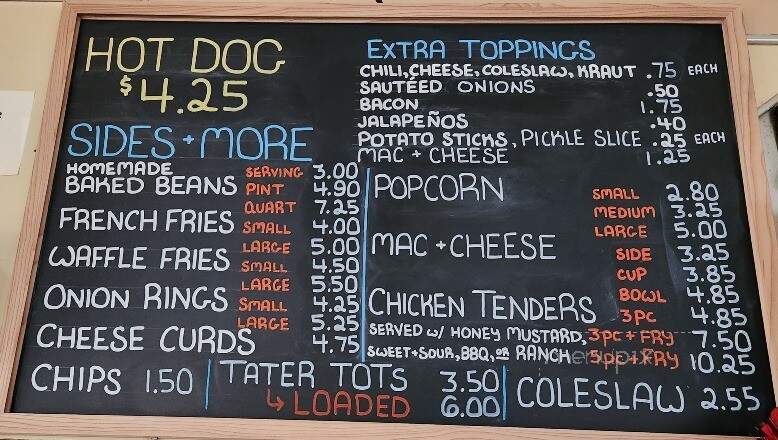 HOT DOG
$4.25
EXTRA TOPPINGS
CHILI, CHEESE, COLESLAW, KRAUT .75 EACH
SAUTÉED ONIONS .50
BACON 1.75
JALAPEÑOS .40
POTATO STICKS, PICKLE SLICE .25 EACH
MAC + CHEESE 1.25
SIDES + MORE
HOMEMADE BAKED BEANS
SERVING 3.00
PINT 4.90
QUART 7.25
FRENCH FRIES
SMALL 4.00
LARGE 5.00
WAFFLE FRIES
SMALL 4.50
LARGE 5.50
ONION RINGS
SMALL 4.25
LARGE 5.25
CHEESE CURDS 4.75
POPCORN
SMALL 2.80
MEDIUM 3.25
LARGE 5.00
MAC + CHEESE
SIDE 3.25
CUP 3.85
BOWL 4.85
CHICKEN TENDERS
3PC 4.85
SERVED W/ HONEY MUSTARD, 3PC + FRY 7.50
SWEET+SOUR, BBQ, OR RANCH 5PC + FRY 10.25
CHIPS 1.50
TATER TOTS 3.50
↳ LOADED 6.00
COLESLAW 2.55